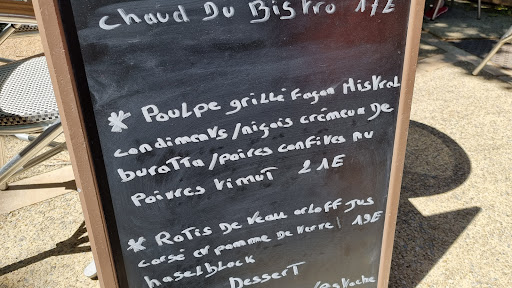 Chaud Du Bistro 17E
* Poulpe grillé Façon Mistral
condiments/niçois crémeux De
buratta/poires confives au
Poivres vimut 21E
* Rotis De Veau orloff jus
corsé et pomme De terre/ 19E
haselblack
Dessert